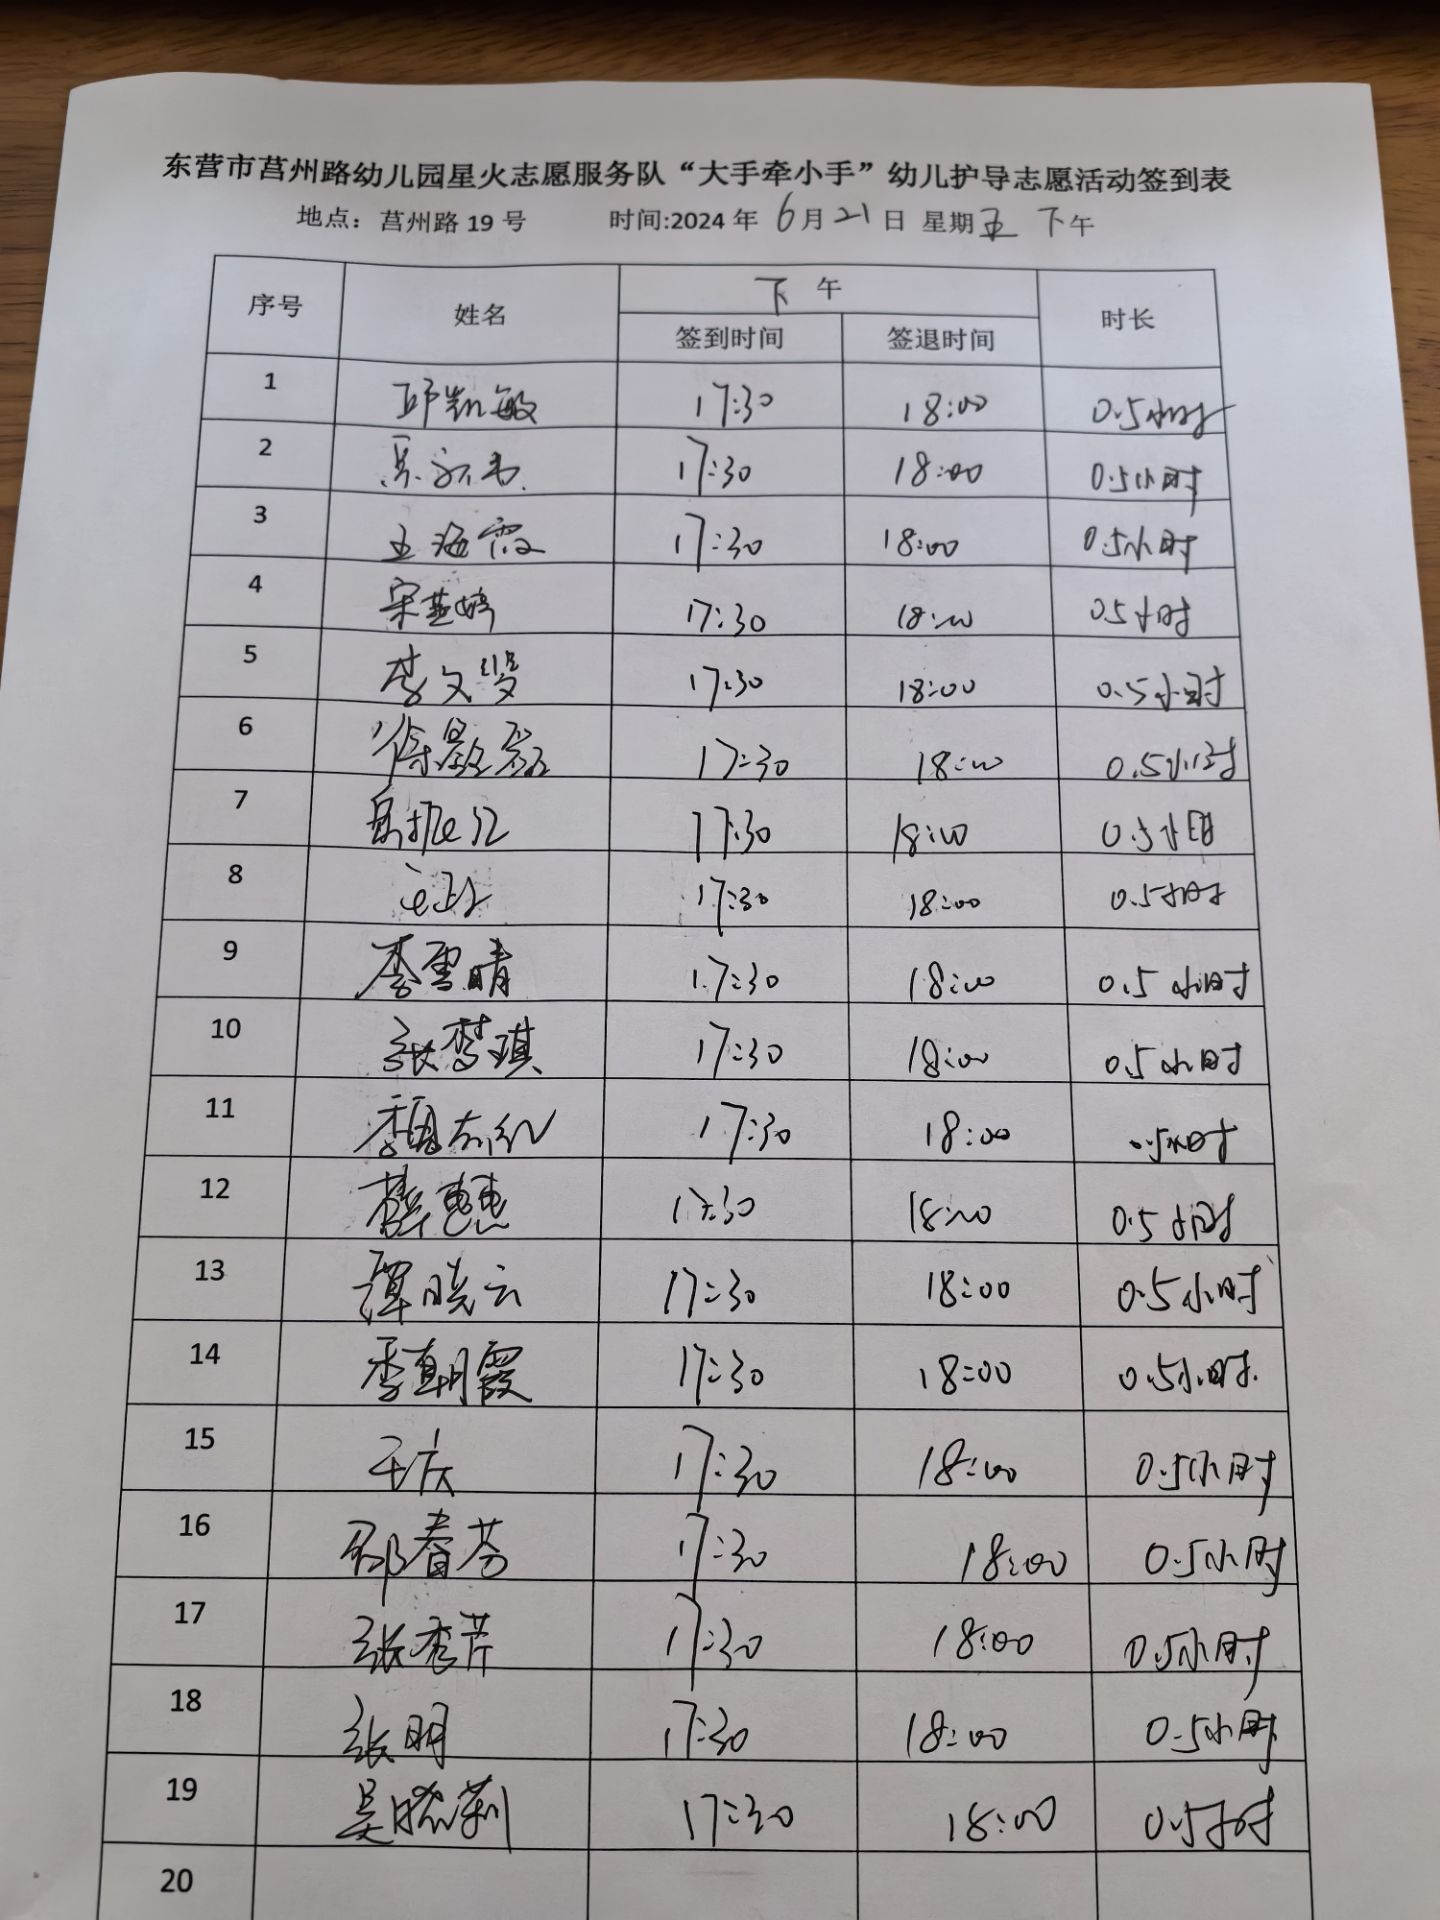 东营市莒州路幼儿园星火志愿服务队“大手牵小手”幼儿护导志愿活动签到表
地点：莒州路 19 号 时间:2024 年 6月21日 星期五 下午
序号 姓名 下午 时长
签到时间 签退时间
1 邱凯敏 17:30 18:00 0.5小时
2 17:30 18:00 0.5小时
3 王海霞 17:30 18:00 0.5小时
4 宋燕婷 17:30 18:00 0.5小时
5 李文嫚 17:30 18:00 0.5小时
6 17:30 18:00 0.5小时
7 17:30 18:00 0.5小时
8 17:30 18:00 0.5小时
9 李雪晴 17:30 18:00 0.5小时
10 张梦琪 17:30 18:00 0.5小时
11 17:30 18:00 0.5小时
12 薛惠惠 17:30 18:00 0.5小时
13 谭晓云 17:30 18:00 0.5小时
14 李朝霞 17:30 18:00 0.5小时
15 于庆 17:30 18:00 0.5小时
16 邵春芬 17:30 18:00 0.5小时
17 张秀芹 17:30 18:00 0.5小时
18 张明 17:30 18:00 0.5小时
19 吴晓莉 17:30 18:00 0.5小时
20